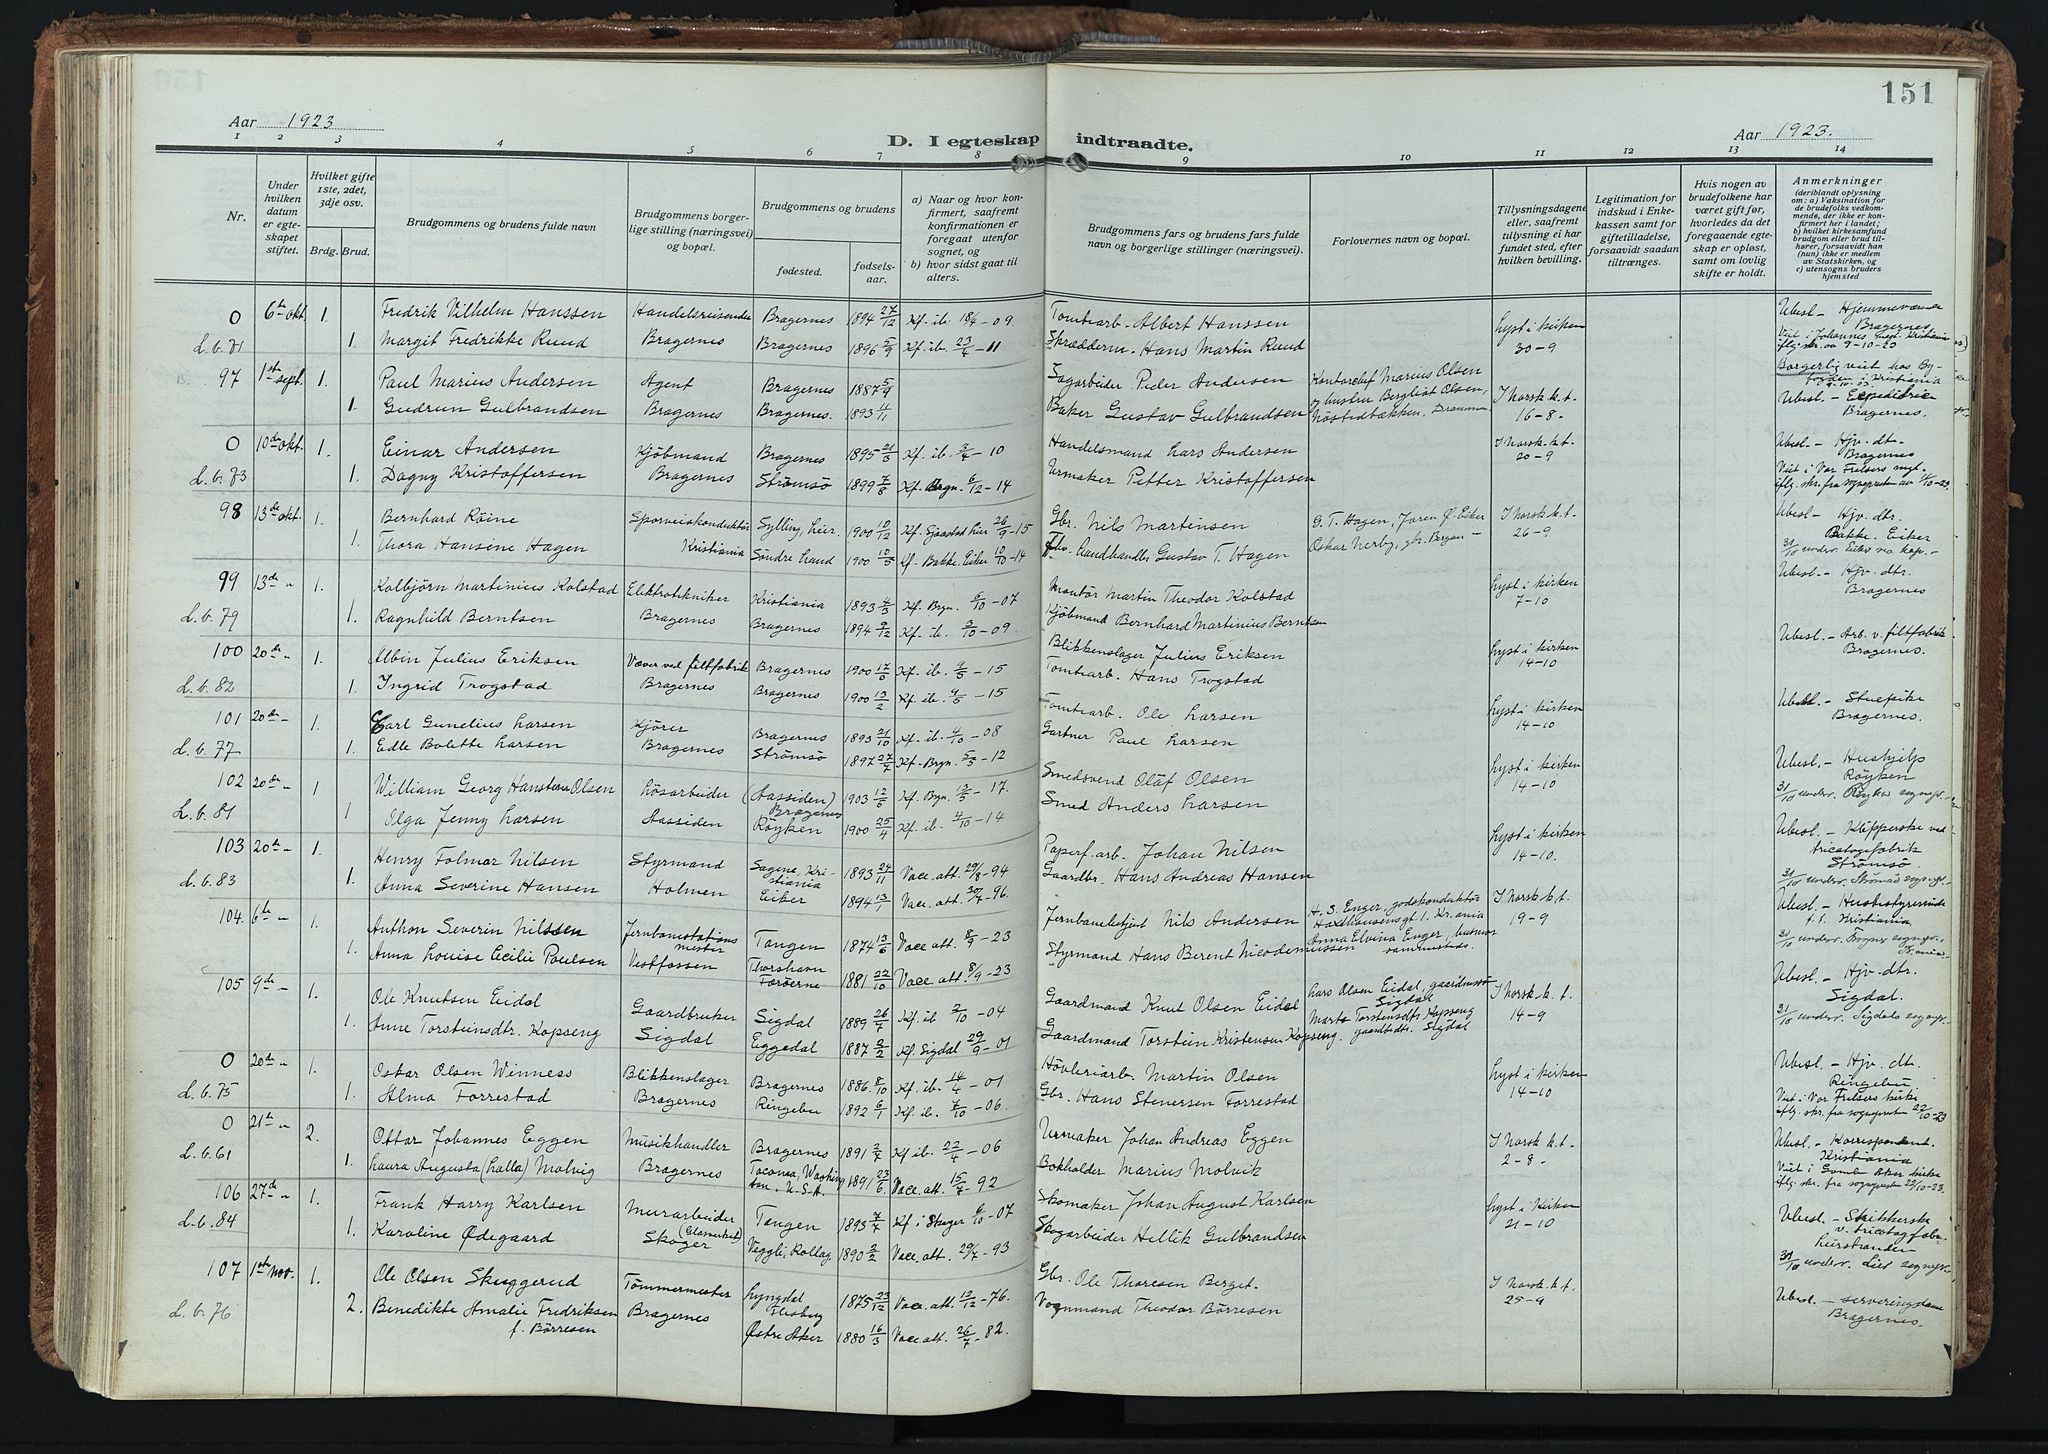 151
Aar 1923
D. I egteskap indtraadte.
Aar 1923.
1 2 3 4 5 6 7 8 9 10 11 12 13 14
Nr.
Under hvilken datum er egteskapet stiftet.
Hvilket gifte 1ste, 2det, 3dje osv.
Brdg. Brud.
Brudgommens og brudens fulde navn
Brudgommens borgerlige stilling (næringsvei) og bopæl.
Brudgommens og brudens
fødested. fødselsaar.
a) Naar og hvor konfirmert, saafremt konfirmationen er foregaat utenfor sognet, og
b) hvor sidst gaat til alters.
Brudgommens fars og brudens fars fulde navn og borgerlige stillinger (næringsvei).
Forlovernes navn og bopæl.
Tillysningsdagene eller, saafremt tillysning ei har fundet sted, efter hvilken bevilling.
Legitimation for indskud i Enkekassen samt for giftetilladelse, forsaavidt saadan tiltrænges.
Hvis nogen av brudefolkene har været gift før, hvorledes da det foregaaende egteskap er opløst, samt om lovlig skifte er holdt.
Anmerkninger (deriblandt oplysning om: a) Vaksination for de brudefolks vedkommende, der ikke er konfirmert her i landet; b) hvilket kirkesamfund brudgom eller brud tilhører, forsaavidt han (hun) ikke er medlem av Statskirken, og c) utensogns bruders hjemsted
0 6te okt. 1. Fredrik Vilhelm Hanssen Handelsreisende Bragernes 1894 27/12 Kf. ib. 18/4 - 09. Tomtearb. Albert Hanssen Lyst i kirken 30-9 Ubesl. - Hjemmeværende Bragernes
L.b. 71 1. Margit Fredrikke Ruud Bragernes Bragernes 1896 5/9 Kf. ib. 23/4 - 11 Skrædderm. Hans Martin Ruud iflg. skr. av 9-10-23
97 1ste sept. 1. Paul Marius Andersen Agent Bragernes 1887 5/9 Sagarbeider Peder Andersen Kontorchef Marius Olsen og hustru Bergliot Olsen, Nøstedbækken, Drammen I Norsk. k.t. 16-8- Borgerlig viet hos Byfogden i Kristiania
1. Gudrun Gulbrandsen Bragernes Bragernes. 1893 4/11 Baker Gustav Gulbrandsen Ubesl. - Expeditrice Bragernes.
0 10de okt. 1. Einar Andersen Kjøbmand Bragernes 1895 21/3 Kf. ib. 3/4 - 10 Handelsmand Lars Andersen I Norsk k.t. 20-9 Ubesl. - Hjv. dt. Bragernes
L.b. 73 1. Dagny Kristoffersen Bragernes Strømsø 1899 7/8 Kf. Brgn. 6/12 - 14 Urmaker Petter Kristoffersen Viet i Vor Frelsers
98 13de okt. 1. Bernhard Röine Sporveiskonduktør Sylling, Lier. 1900 10/12 Kf. Sjaastad Lier 26/9 - 15 Gbr. Nils Martinsen G. T. Hagen, Jaren Ø. Eker I Norsk k.t. 26-9 Ubesl. - Hjv. dtr. Bakke. Eiker
1. Thora Hansine Hagen Kristiania Søndre Land 1900 10/5 Kf. Bakke, Eiker 10/10 - 14 Landhandler Gustav T. Hagen Oskar Nerby, gbr. 31/10 underr.
99 13de " 1. Kolbjörn Martinius Kolstad Elektrotekniker Kristiania 1893 4/3 Kf. Brgn. 6/10 - 07 Montør Martin Theodor Kolstad Lyst i kirken 7-10 Ubesl. - Hjv. dtr. Bragernes
L.b. 79 1. Ragnhild Berntsen Bragernes Bragernes 1894 9/12 Kf. ib. 3/10 - 09. Kjøbmand Bernhard Martinius Berntsen
100 20de " 1. Albin Julius Eriksen Væver ved filtfabrik Bragernes 1900 17/5 Kf. ib. 9/5 - 15 Blikkenslager Julius Eriksen Lyst i kirken 14-10 Ubesl. - Arb. v. filtfabrik Bragernes.
L.b. 82 1. Ingrid Trogstad Bragernes Bragernes 1900 13/2 Kf. ib. 9/5 - 15 Tomtearb. Hans Trogstad
101 20de " 1. Carl Gunelius Larsen Kjører Bragernes 1893 21/10 Kf. ib. 4/10 - 08 Tomtearb. Ole Larsen Lyst i kirken 14-10 Ubesl. - Stuepike Bragernes.
L.b. 77 1. Edle Bolette Larsen Bragernes Strømsø 1897 27/7 Kf. Brgn. 5/5 - 12 Gartner Paul Larsen
102 20de " 1 William Georg Hansteen Olsen Løsarbeider (Aassiden) Bragernes 1903 12/5 Kf. Brgn. 13/5 - 17. Smedsvend Olaf Olsen Lyst i kirken 14-10 Ubesl. - Hushjelp Røyken
L.b. 81 1 Olga Jenny Larsen Aassiden Röyken 1900 25/4 Kf. ib. 4/10 - 14 Smed Anders Larsen 31/10 underr. Röyken sognepr.
103 20de " 1. Henry Folmar Nilsen Styrmand Sagene, Kristiania 1893 24/11 Vacc. att. 29/8 - 94 Papirf. arb. Johan Nilsen Lyst i kirken 14-10. Ubesl. - Klipperske ved tricotagefabrik Strömsø
L.b. 83 1. Anna Severine Hansen Holmen Eiker 1894 13/1 Vacc. att. 30/7 - 96. Gaardbr. Hans Andreas Hansen 31/10 underr. Strömsø sognepr.
104. 6te " 1. Anthon Severin Nilssen Jernbanestationsmester Tangen 1874 13/6 Vacc. att. 8/9 - 23 Jernbanebetjent Nils Andersen H. S. Enger, godskonduktør Haxthausensgt. 1. Kr.ania I Norsk k.t. 19-9 Ubesl. - Husbestyrerinde f.t. Kristiania
1. Anna Louise Cecilie Paulsen Vestfossen Thorshavn Færøerne 1881 22/10 Vacc. att. 8/9 - 23 Styrmand Hans Berent Nicodemussen Anna Elvina Enger, hustru sammesteds. 31/10 underr.
105 9de " 1. Ole Knutsen Eidal Gaardbruker Sigdal 1889 26/7 Kf. ib 2/10 - 04 Gaardmand Knut Olsen Eidal Lars Olsen Eidal, Sigdal I Norsk. k. t. 14-9 Ubesl. - Hjv. dtr. Sigdal.
1. Anne Torsteinsdtr. Kopseng Sigdal Eggedal 1887 2/2 Kf. Sigdal 29/9 - 01 Gaardmand Torstein Kristensen Kopseng. Marta Torstensdtr. Kopseng gaardbdtr. Sigdal 31/10 underr. Sigdals sognepr.
0 20de " 1. Oskar Olsen Winness Blikkenslager Bragernes 1886 8/10 Kf. ib. 14/4 - 01 Høvleriarb. Martin Olsen Lyst i kirken 14-10 Ubesl. - Hjv. dt. Ringebu
L.b. 75 1. Alma Forrestad Bragernes Ringebu 1892 6/1 Kf. ib. 7/10 - 06. Gbr. Hans Stenersen Forrestad Viet i Vor Frelsers kirke iflg. skr. fra sognepresten 22/10-23
0 21de " 2. Ottar Johannes Eggen Musikhandler Bragernes 1891 2/7 Kf ib. 22/4 - 06 Urmaker Johan Andreas Eggen I Norsk k.t. 2-8- Ubesl. - Korrespondent. Kristiania
L.b. 61 1. Laura Augusta (Lalla) Molvig Bragernes Tacoma, Washington, U.S.A. 1891 23/6 Vacc. att. 15/7 - 92 Bokholder Marius Molvik Viet i Gamle Aker kirke iflg. skr. fra sognepresten 22/10-23.
106 27de " 1. Frank Harry Karlsen Murarbeider Tangen 1893 7/7 Kf i Skoger 6/10 - 07 Skomaker Johan August Karlsen Lyst i Kirken 21-10 Ubesl. - Strikkerske v. tricotagfabr. Lierstranden
L.b. 84 1. Karoline Ødegaard (Glasverket) Skoger Veggli, Rollag 1890 2/2 Vacc. att. 29/7 - 93 Skogarbeider Hellik Gulbrandsen 31/10 underr. Lier sognepr.
107 1ste nov. 1. Ole Olsen Skuggerud Tömmermester Lyngdal Flesberg 1875 23/12 Vacc. att. 13/12 - 76. Gbr. Ole Thoresen Berget. I Norsk. k.t. 25-9
L.b. 76 2. Benedikte Amalie Fredriksen f. Börresen Bragernes Østre Aker 1880 16/3 Vacc. att. 26/7 - 82. Vognmand Theodor Börresen Ubesl. - serveringsdame Bragernes.